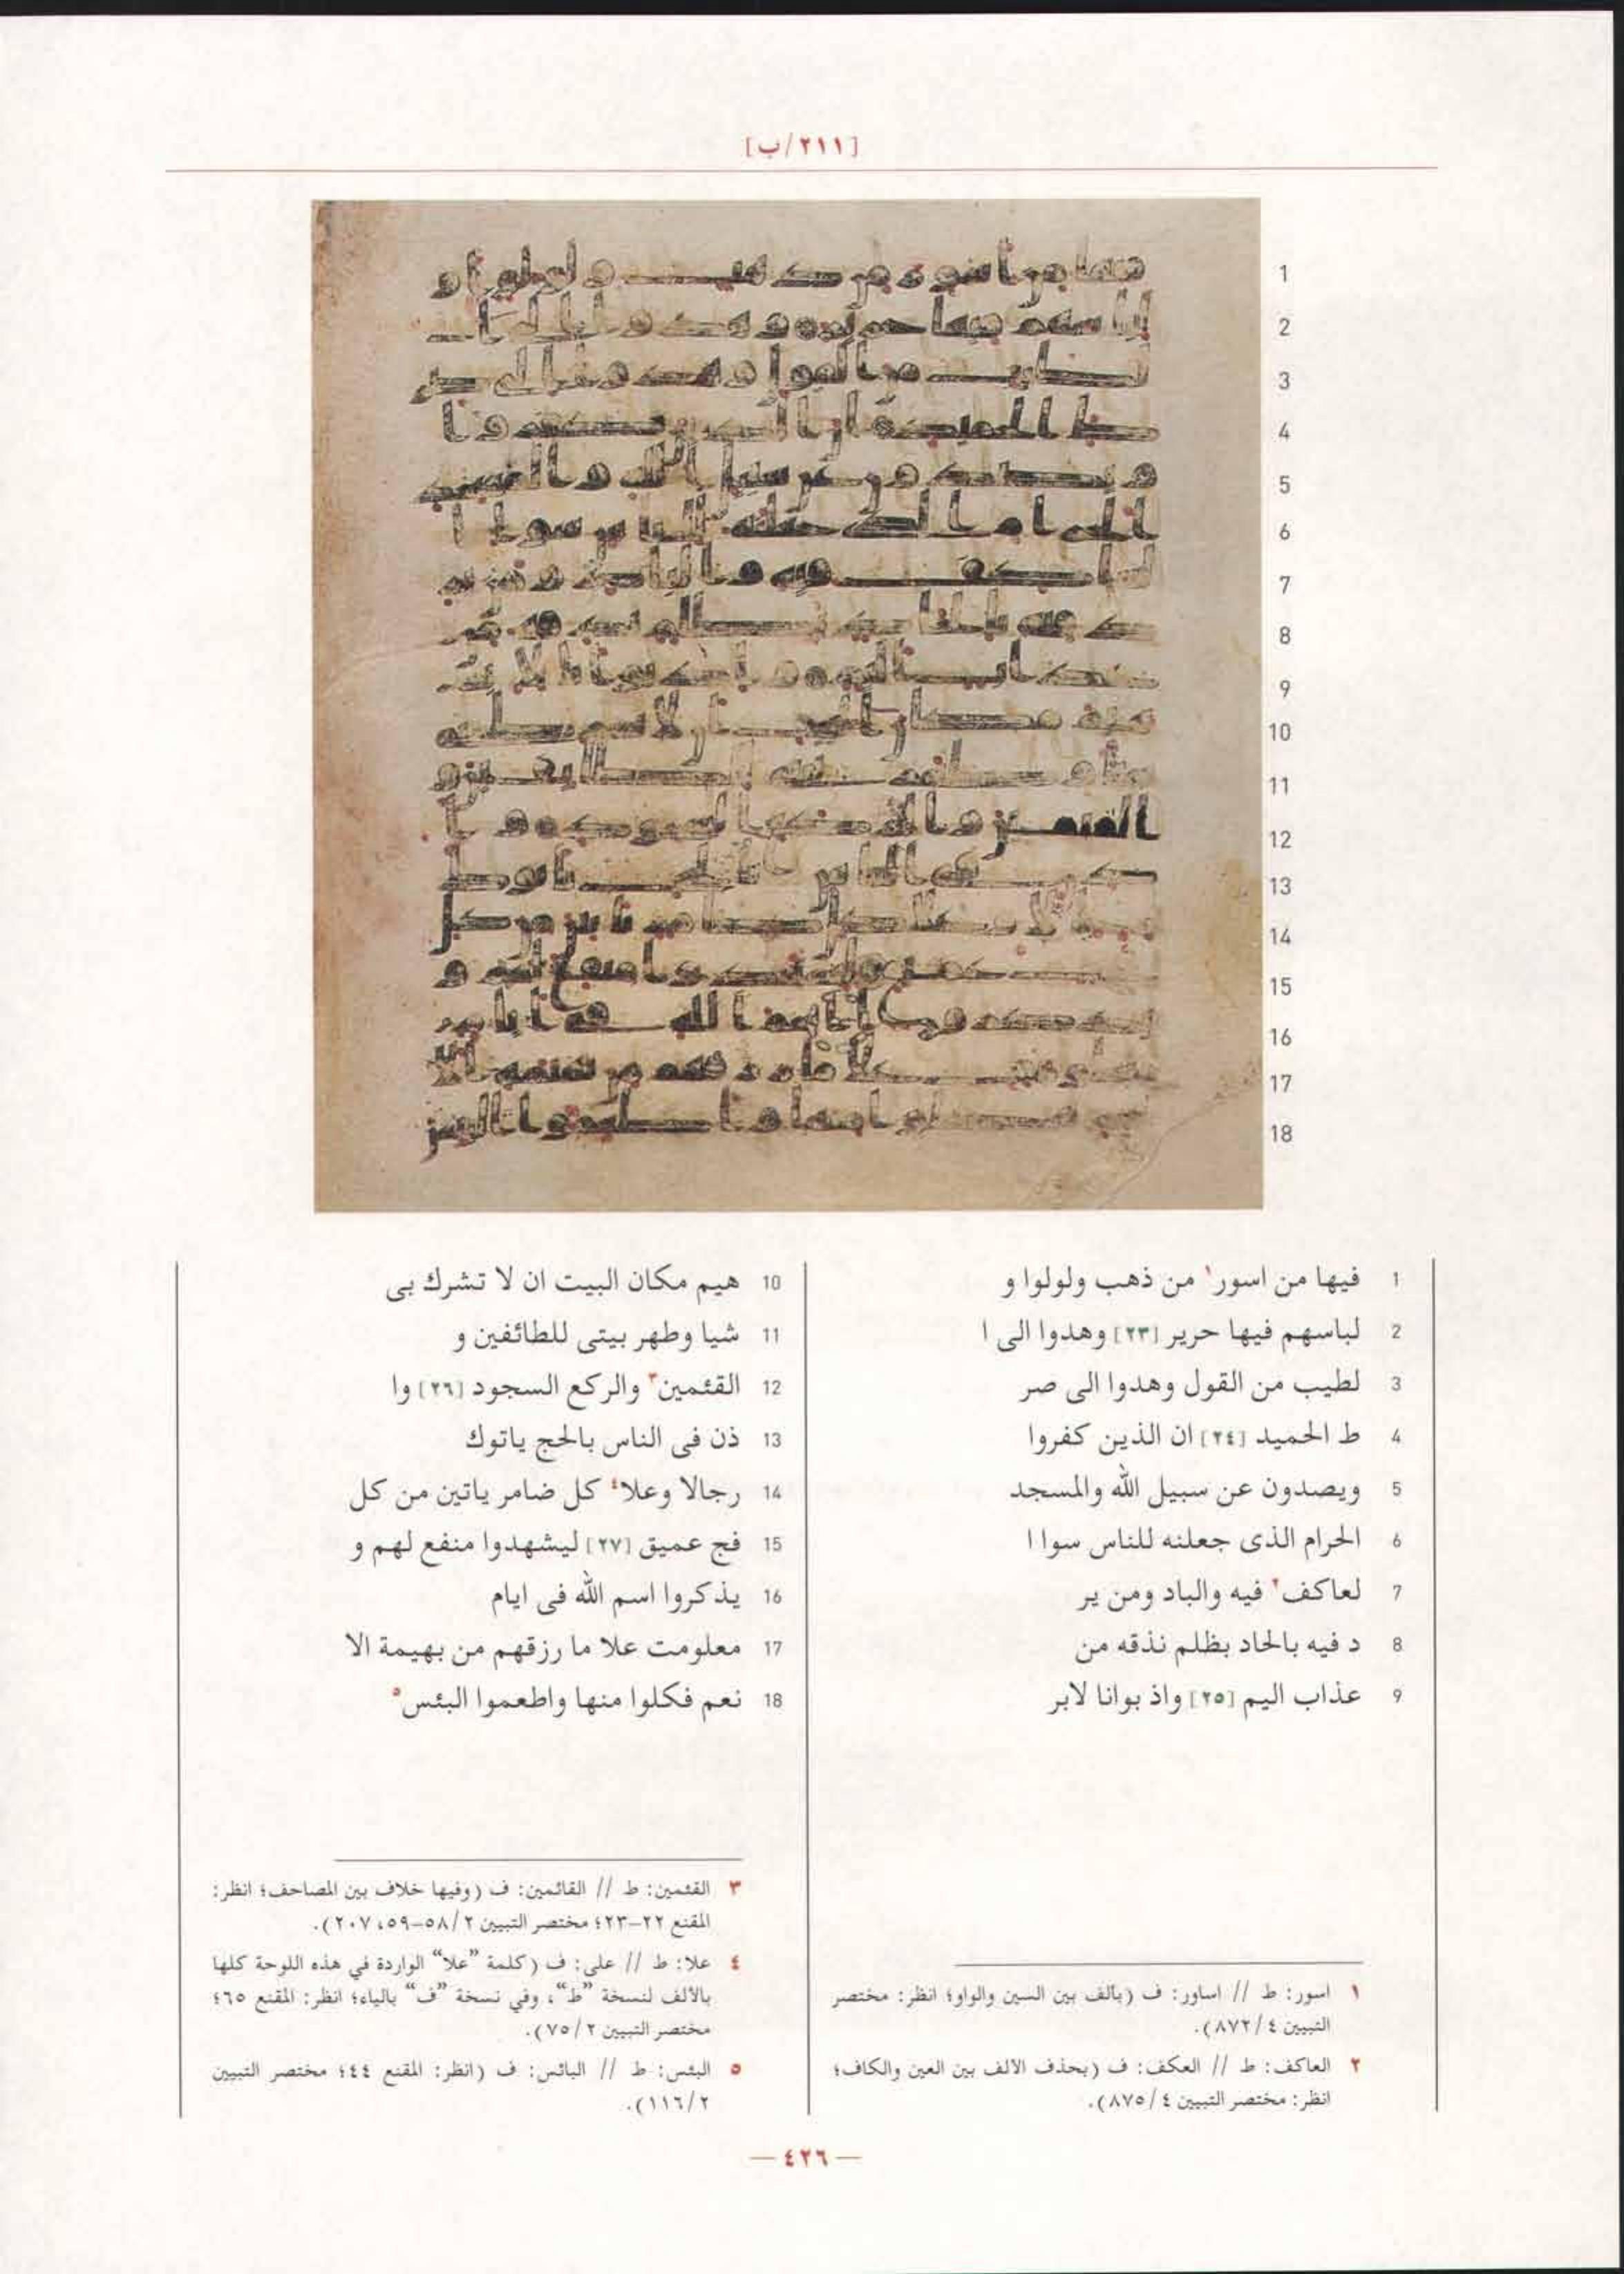 [٢١١/ب]
1 فيها من اسور١ من ذهب ولولوا و
2 لباسهم فيها حرير [٢٣] وهدوا الى ا
3 لطيب من القول وهدوا الى صر
4 ط الحميد [٢٤] ان الذين كفروا
5 ويصدون عن سبيل الله والمسجد
6 الحرام الذى جعلنه للناس سوا ا
7 لعاكف٢ فيه والباد ومن ير
8 د فيه بالحاد بظلم نذقه من
9 عذاب اليم [٢٥] واذ بوانا لابر
10 هيم مكان البيت ان لا تشرك بى
11 شيا وطهر بيتى للطائفين و
12 القئمين٣ والركع السجود [٢٦] وا
13 ذن فى الناس بالحج ياتوك
14 رجالا وعلا٤ كل ضامر ياتين من كل
15 فج عميق [٢٧] ليشهدوا منفع لهم و
16 يذكروا اسم الله فى ايام
17 معلومت علا ما رزقهم من بهيمة الا
18 نعم فكلوا منها واطعموا البئس٥
١ اسور: ط // اساور: ف (بألف بين السين والواو؛ انظر: مختصر
التبيين ٤/٨٧٢).
٢ العاكف: ط // العكف: ف (بحذف الالف بين العين والكاف؛
انظر: مختصر التبيين ٤/٨٧٥).
٣ القئمين: ط // القائمين: ف (وفيها خلاف بين المصاحف؛ انظر:
المقنع ٢٢-٢٣؛ مختصر التبيين ٢/٥٨-٥٩، ٢٠٧).
٤ علا: ط // على: ف (كلمة "علا" الواردة في هذه اللوحة كلها
بالألف لنسخة "ط"، وفي نسخة "ف" بالياء؛ انظر: المقنع ٦٥؛
مختصر التبيين ٢/٧٥).
٥ البئس: ط // البائس: ف (انظر: المقنع ٤٤؛ مختصر التبيين
٢/١١٦).
— ٤٢٦ —